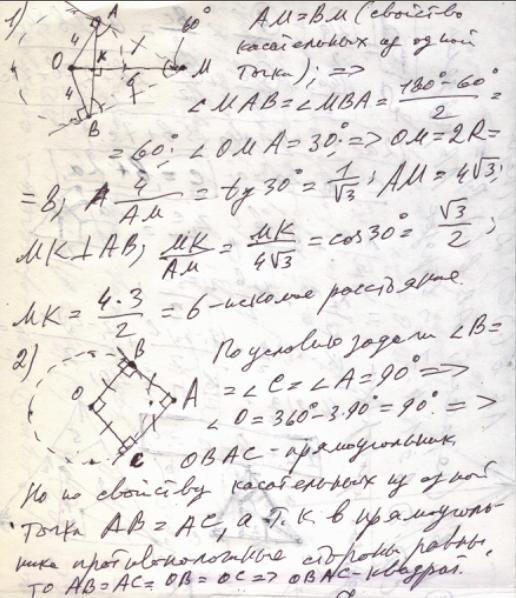 1) A 60° AM=BM (свойство
касательных из одной
точки); =>
4 O K M 4 B
∠MAB=∠MBA= (180°-60°)/2 =
=60°; ∠OMA=30°; => OM=2R=
=8; 4/AM = tg30° = 1/√3; AM=4√3;
MK⊥AB; MK/AM = MK/4√3 = cos30° = √3/2;
MK = 4·3/2 = 6 - искомое расстояние.
2) B По условию задачи ∠B=
O A =∠C=∠A=90° =>
∠O=360°-3·90°=90° =>
C OBAC-прямоугольник
Но по свойству касательных из одной
точки AB=AC, а т.к. в прямоуголь-
ника противоположные стороны равны,
то AB=AC=OB=OC => OBAC-квадрат.